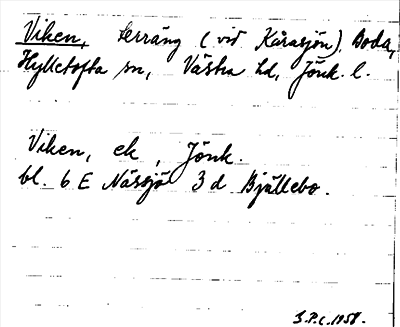 Viken, terräng (vid Kårasjön), Boda,
Hylletofta sn, Västra hd, Jönk. l.
Viken, ek, Jönk.
bl. 6 E Nässjö 3 d Bjällebo.
S.P.C. 1958.